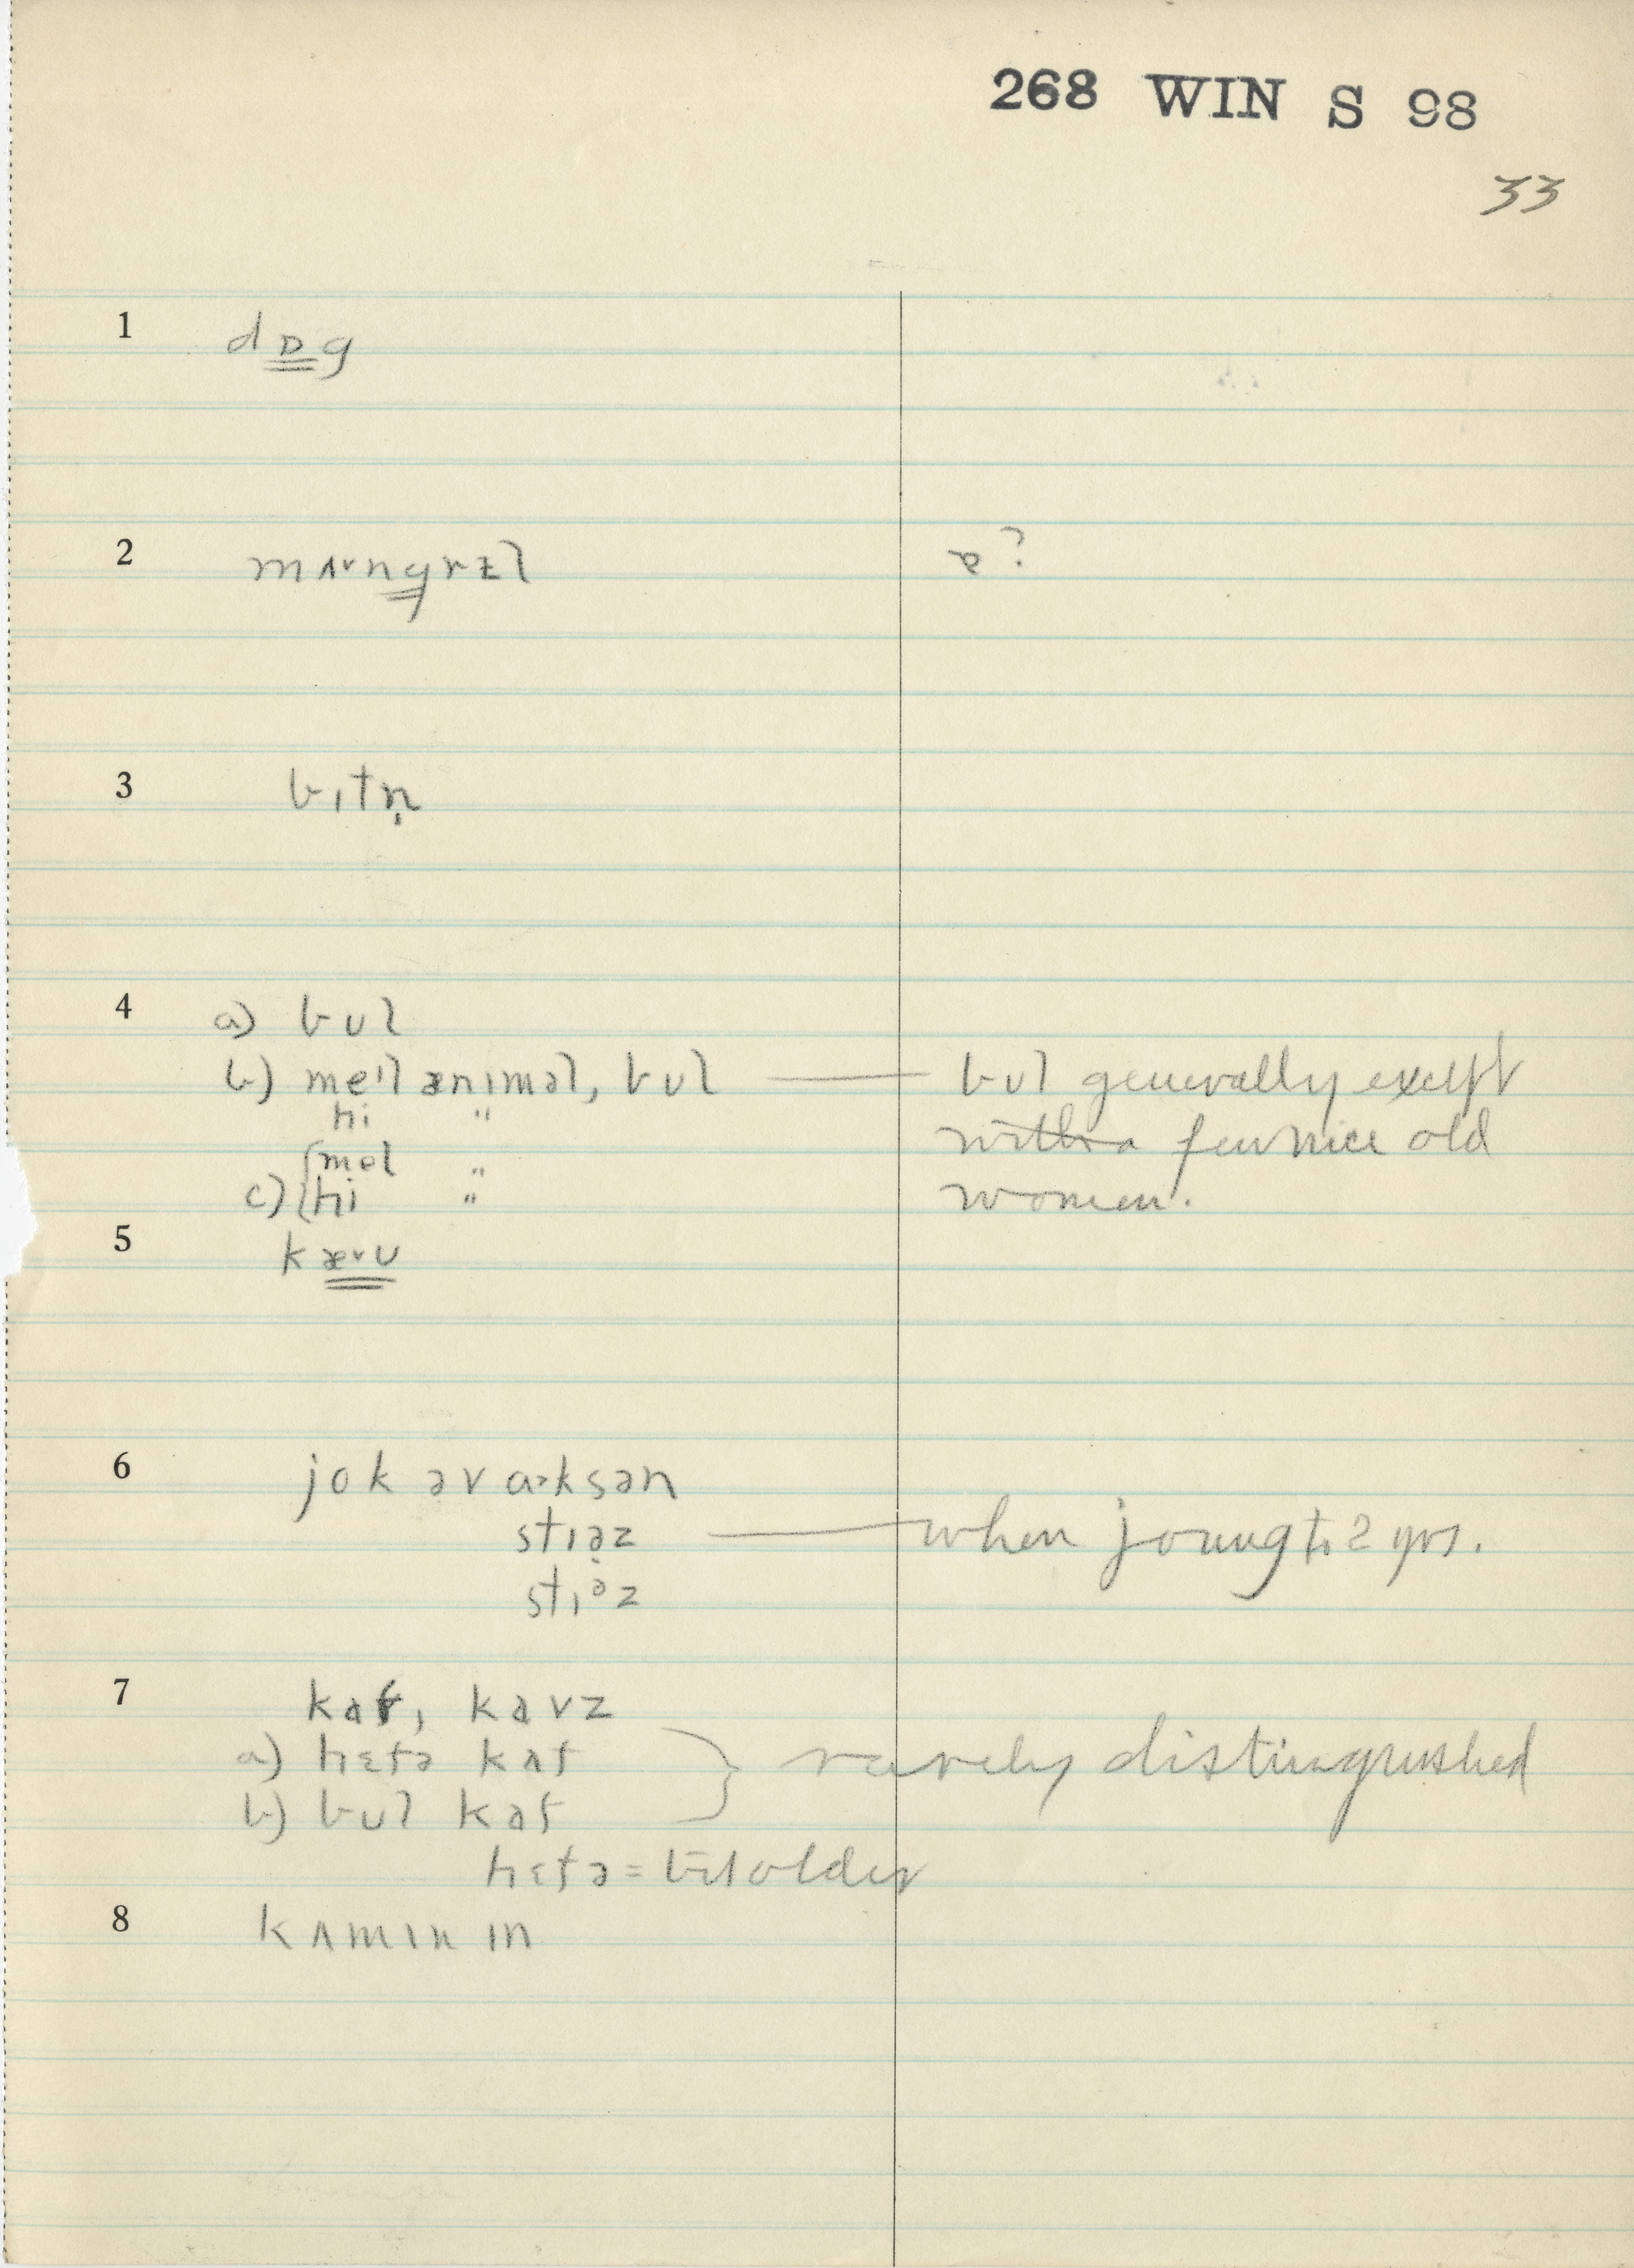 268 WIN S 98
33
1 dɒg
2 mʌvngrɛl ɚ?
3 bɪtn̩
4 a) bʊl
b) meɪl ænɪməl, bʊl — bʊl generally except
hi " with a few nice old
mel " women.
c) hi "
5 kævʊ
6 jok əv ɑksən
stɪəz — when young to 2 yrs.
stɪəz
7 kaf, kavz
a) hɛfə kaf } rarely distinguished
b) bʊl kaf
hɛfə = bit older
8 kʌmɪn ɪn